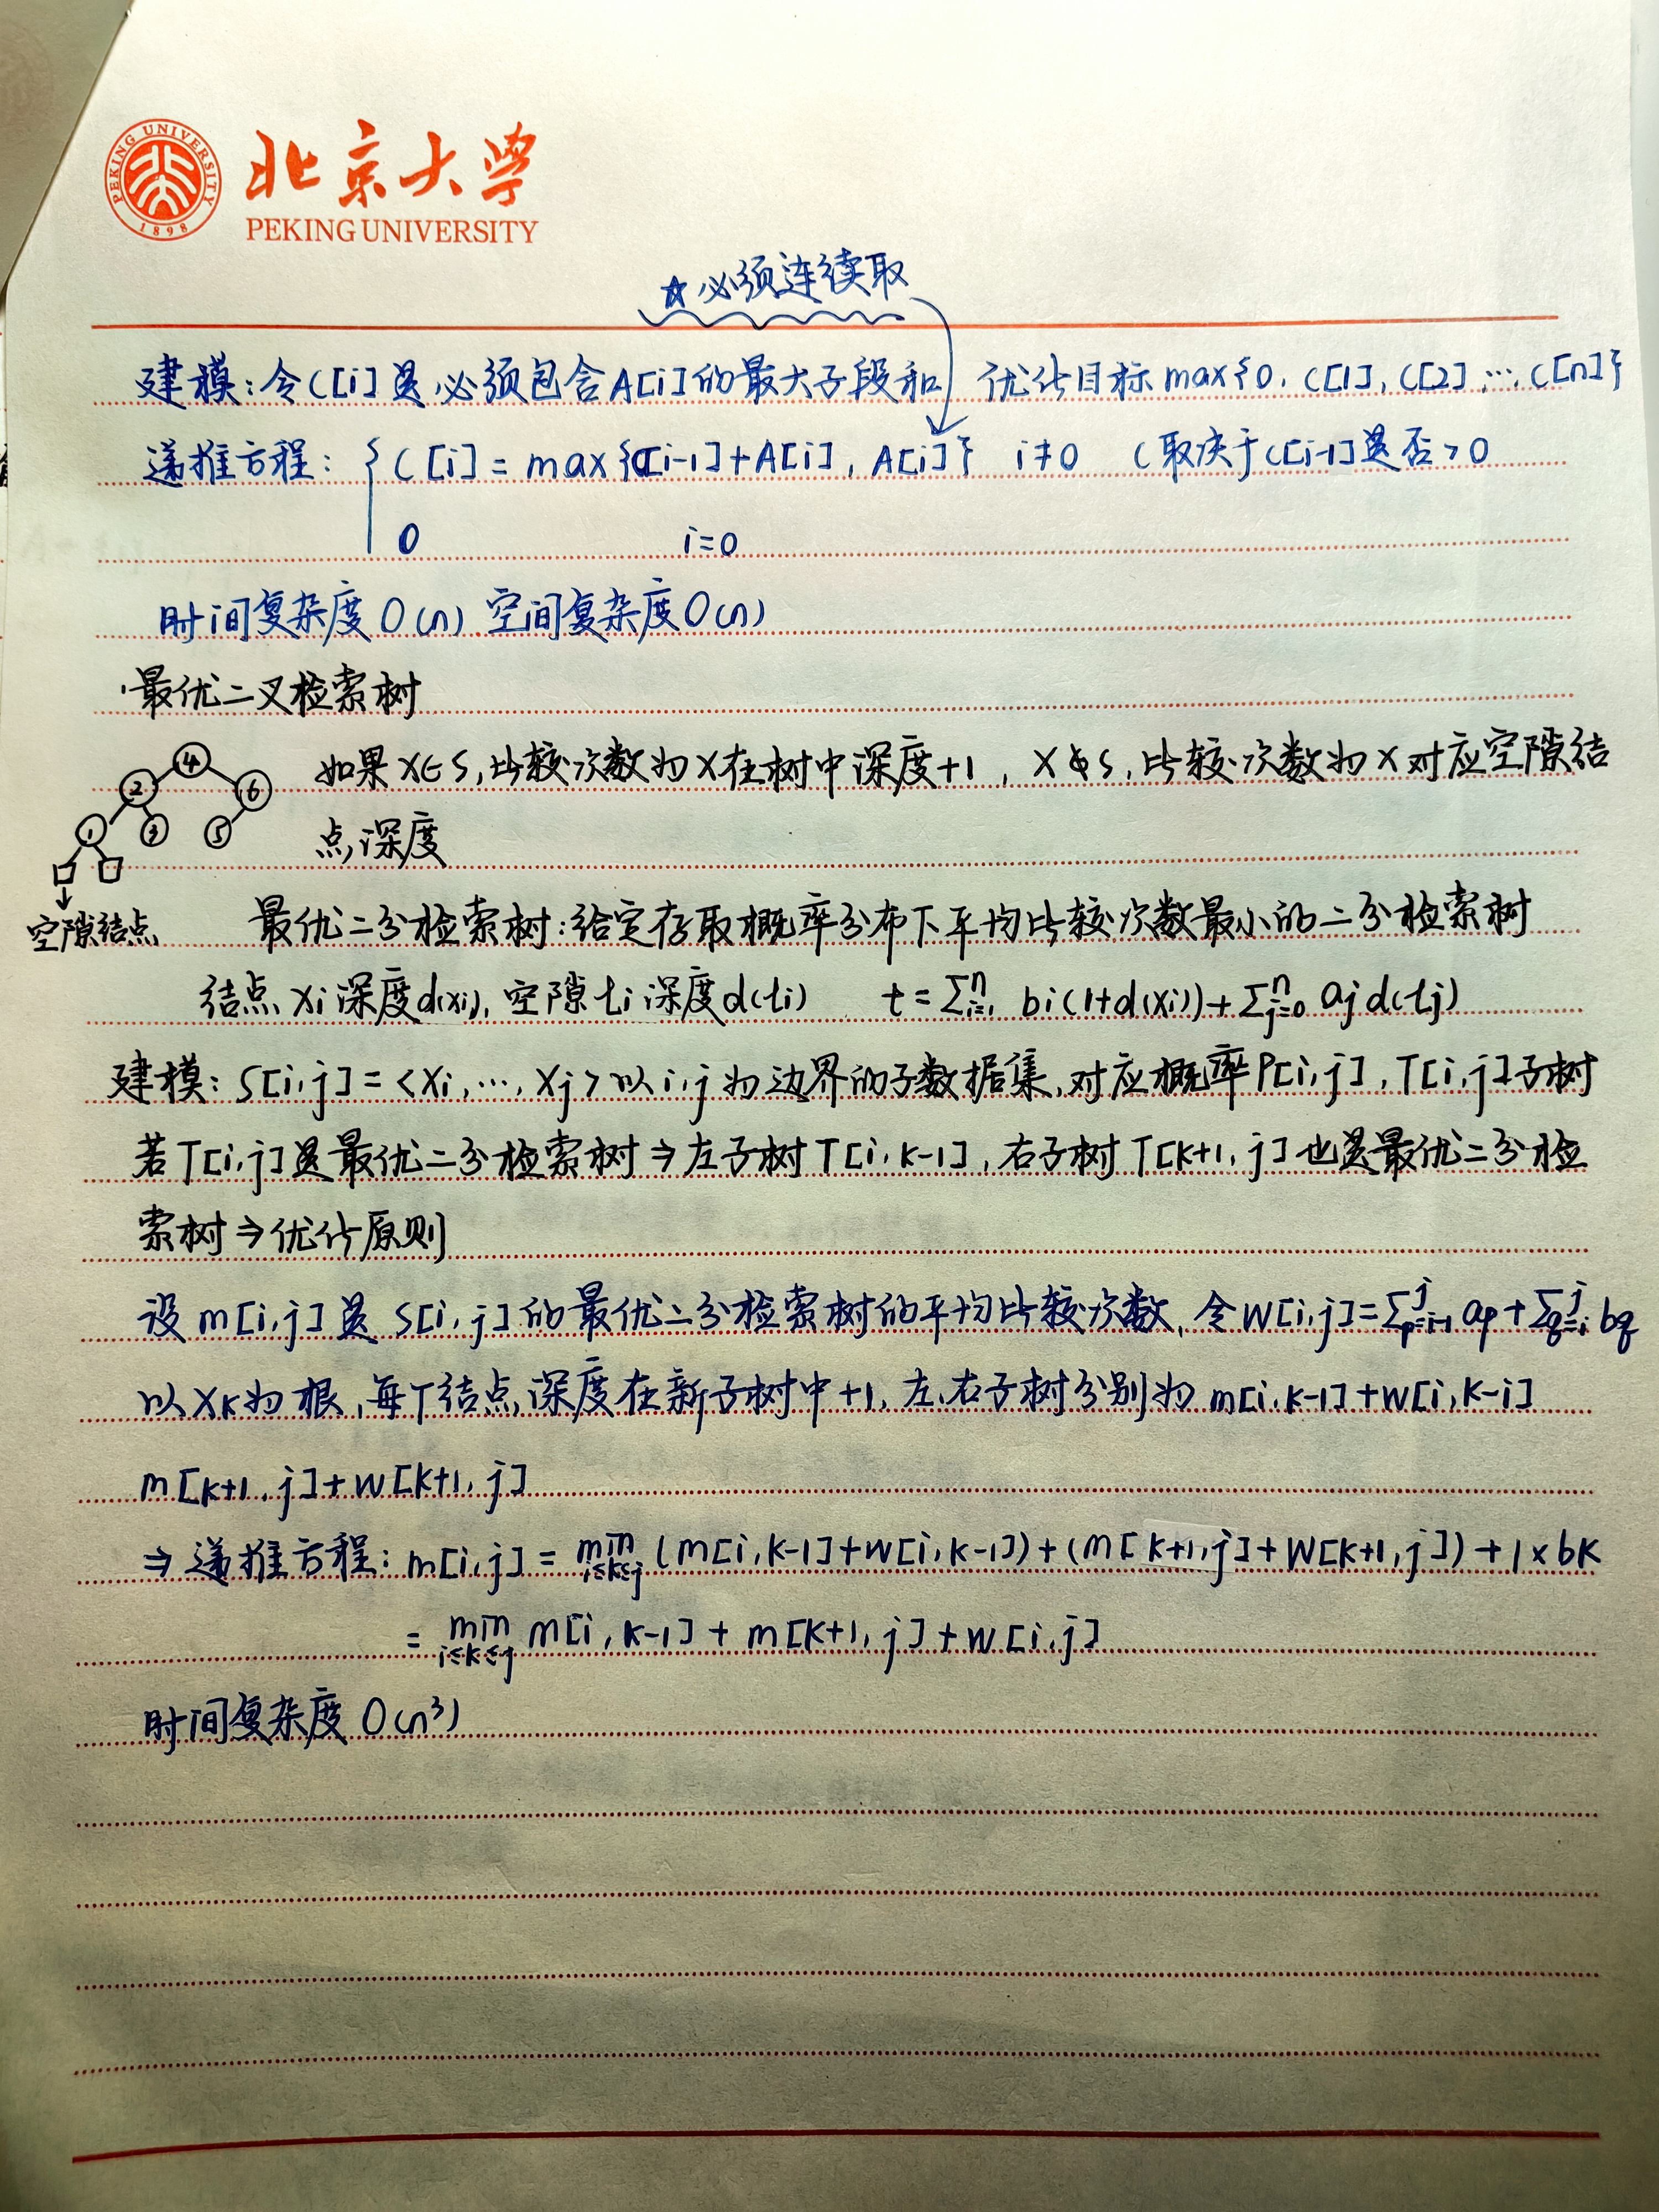 PEKING UNIVERSITY
1898
北京大学
PEKING UNIVERSITY
☆必须连续取
建模:令C[i]是必须包含A[i]的最大子段和 优化目标max{0, C[1], C[2], …, C[n]}
递推方程: { C[i] = max{C[i-1]+A[i], A[i]} i≠0 (取决于C[i-1]是否>0
0 i=0
时间复杂度O(n) 空间复杂度O(n)
·最优二叉检索树
4
2 6
1 3 5
空隙结点
如果X∈S,比较次数为X在树中深度+1, X∉S,比较次数为X对应空隙结
点深度
最优二分检索树:给定存取概率分布下平均比较次数最小的二分检索树
结点Xi深度d(xi),空隙ti深度d(ti) t=∑ⁿᵢ₌₁ bi(1+d(xi))+∑ⁿⱼ₌₀ ajd(tj)
建模: S[i,j]=<Xi,…,Xj>以i,j为边界的子数据集,对应概率P[i,j],T[i,j]子树
若T[i,j]是最优二分检索树⇒左子树T[i,k-1],右子树T[k+1,j]也是最优二分检
索树⇒优化原则
设m[i,j]是S[i,j]的最优二分检索树的平均比较次数,令W[i,j]=∑ʲp=i-1 ap+∑ʲq=i bq
以XK为根,每个结点深度在新子树中+1,左、右子树分别为m[i,k-1]+W[i,K-i]
m[k+1,j]+W[k+1,j]
⇒递推方程: m[i,j] = min i≤k≤j (m[i,k-1]+W[i,k-1])+(m[k+1,j]+W[k+1,j])+1×bK
= min i≤k≤j m[i,k-1]+m[k+1,j]+W[i,j]
时间复杂度O(n³)